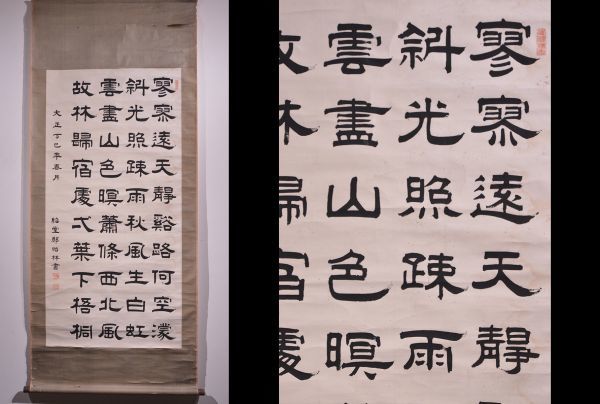 寥寥遠天靜谿路何空濛
斜光照疎雨秋風生白虹
雲盡山色暝蕭條西北風
故林歸宿處弌葉下梧桐
大正丁巳年春月
紹堂鄭貽林書
寥寥遠天靜
斜光照疎雨
雲盡山色暝
故林歸宿處